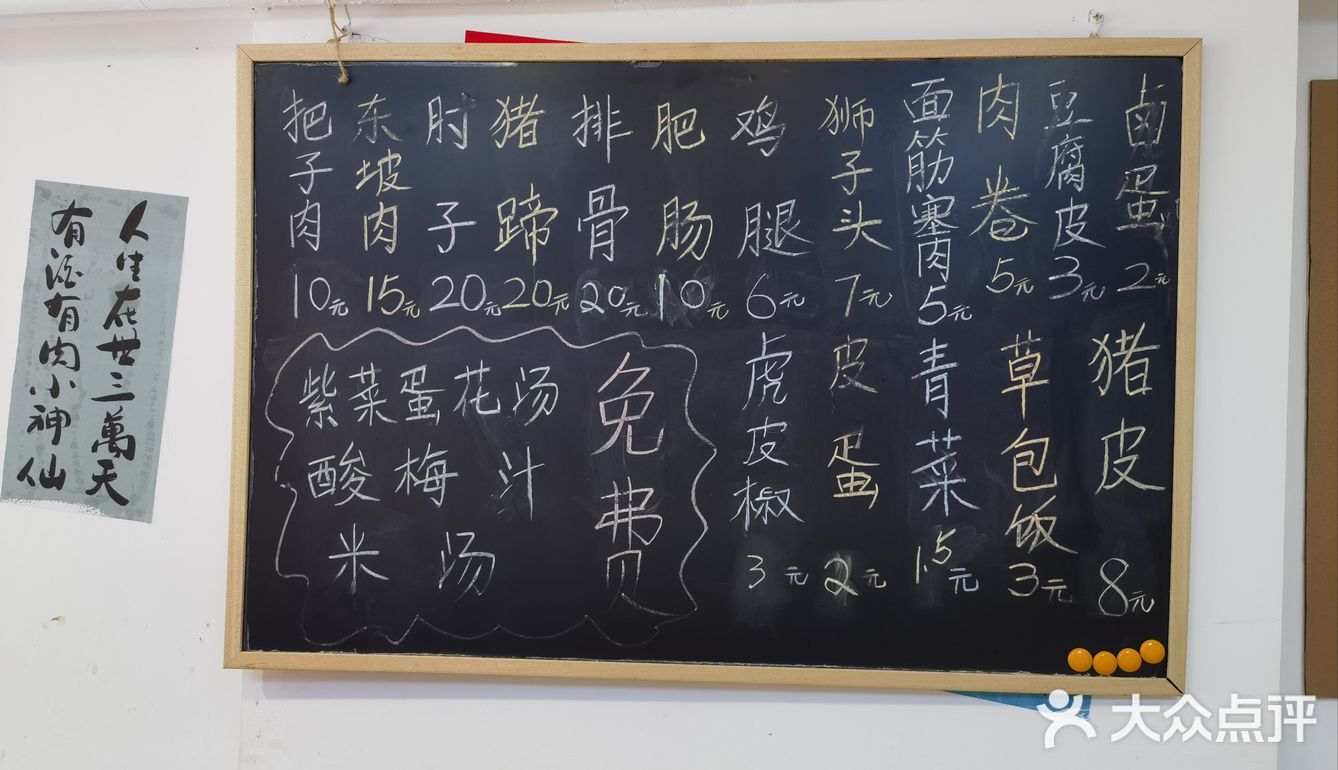 把子肉 10元
东坡肉 15元
肘子 20元
猪蹄 20元
排骨 20元
肥肠 10元
鸡腿 6元
狮子头 7元
面筋塞肉 5元
肉卷 5元
豆腐皮 3元
卤蛋 2元
紫菜蛋花汤
酸梅汁
米汤
免费
虎皮椒 3元
皮蛋 2元
青菜 1.5元
草包饭 3元
猪皮 8元
人生在世三萬天
有酒有肉小神仙
大众点评